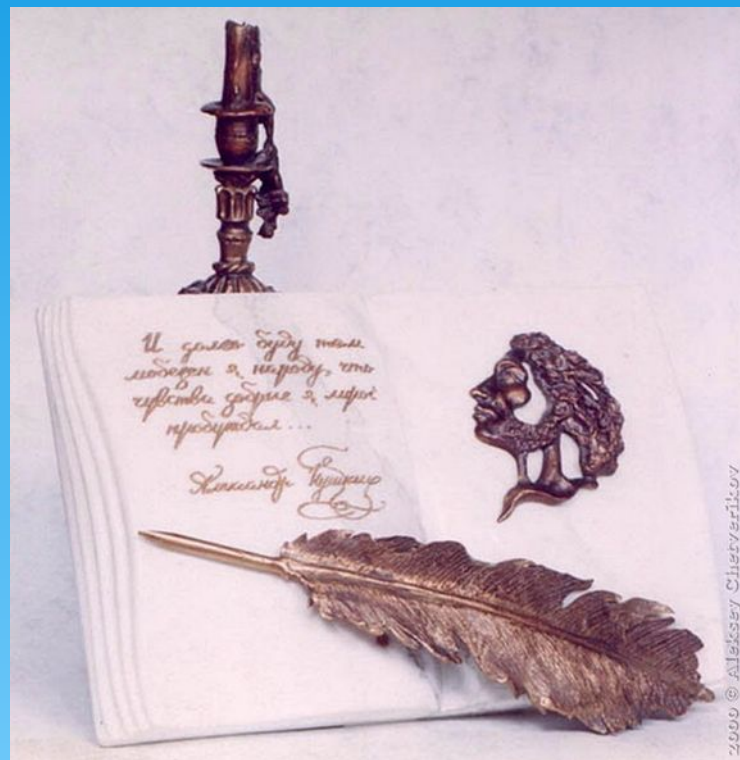 И долго буду тем
любезен я народу, что
чувства добрые я лирой
пробуждал...
Александр Пушкин
2000 © Aleksey Chetverikov